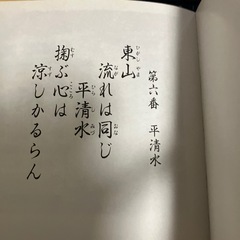 第六番　平清水
東山
流れは同じ
平清水
掬ぶ心は
涼しかるらん